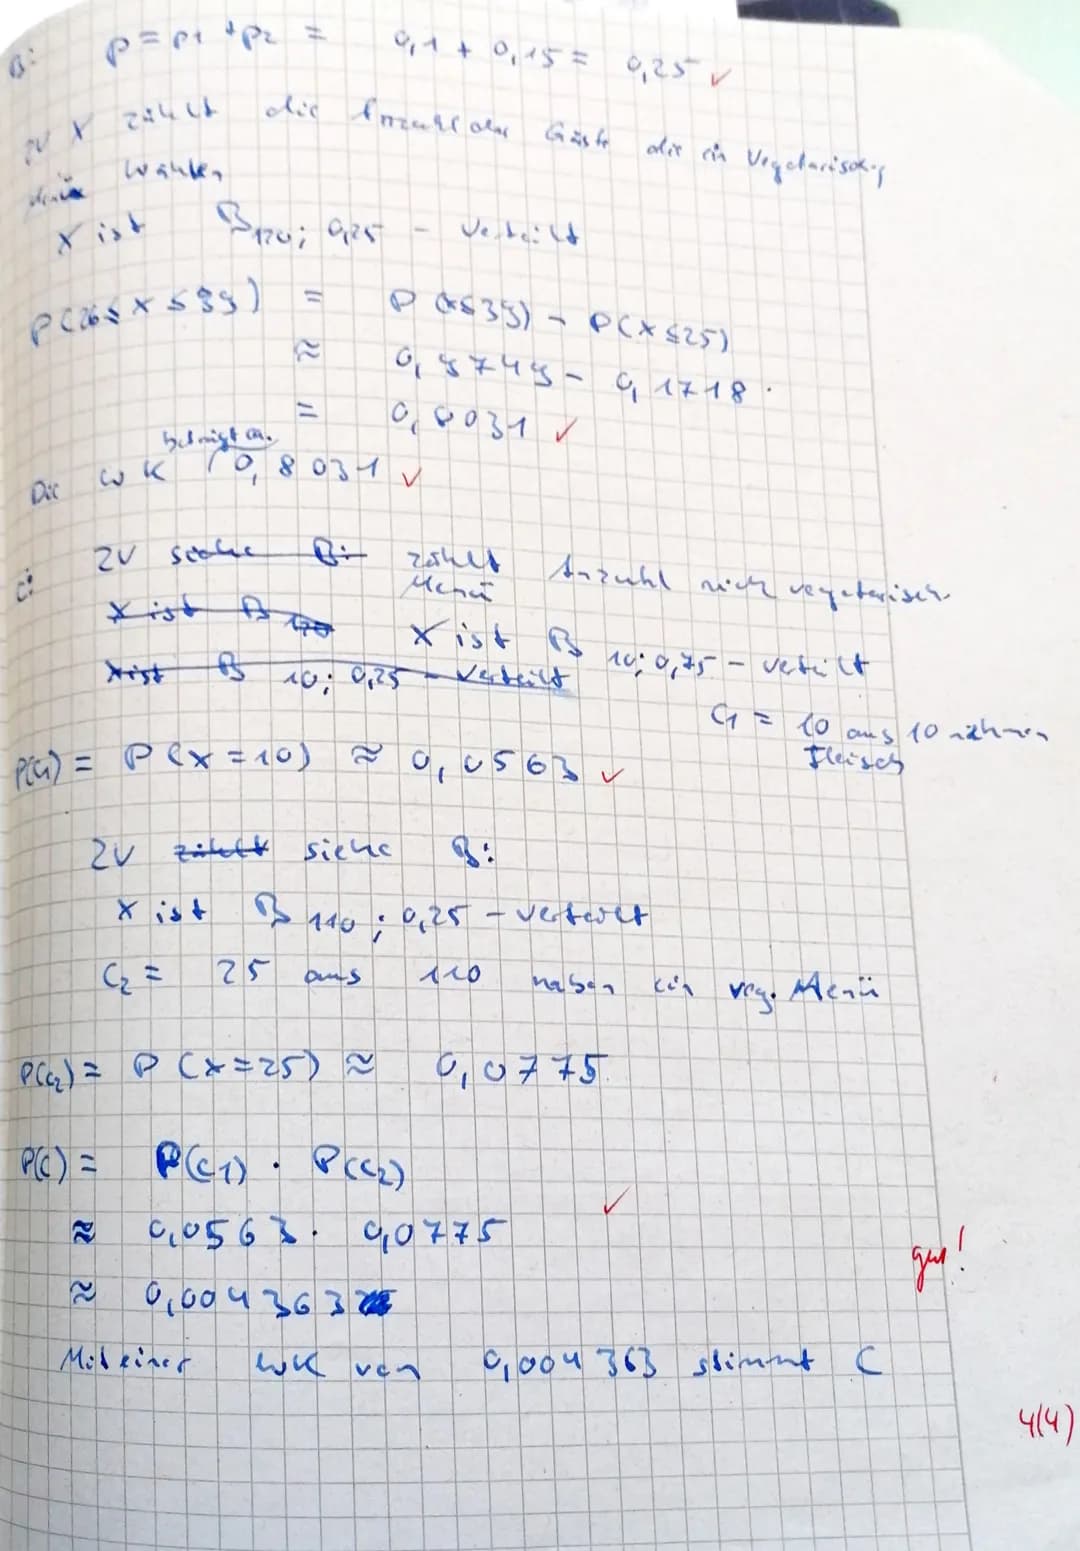 B: p = p1 + p2 = 0,1 + 0,15 = 0,25 ✓
ZV X zählt die Anzahl der Gäste die ein Vegetarisches
Menü wählen
X ist B120; 0,25 - verteilt
P(26 ≤ X ≤ 39) = P(X ≤ 39) - P(X ≤ 25)
≈ 0,9749 - 0,1718
= 0,8031 ✓
beträgt ca.
Die WK 0,8031 ✓
C: ZV siehe B: zählt Anzahl nich vegetarisch
Menü
X ist B120 X ist B10; 0,75 - verteilt
X ist B10; 0,25 - verteilt
C1 = 10 aus 10 nehmen
Fleisch
P(C1) = P(X = 10) ≈ 0,0563 ✓
ZV zählt siehe B:
X ist B110; 0,25 - verteilt
C2 = 25 aus 110 haben ein veg. Menü
P(C2) = P(X = 25) ≈ 0,0775
P(C) = P(C1) · P(C2)
≈ 0,0563 · 0,0775 ✓
gut!
≈ 0,004363
Mit einer WK von 0,004363 stimmt C
4(4)